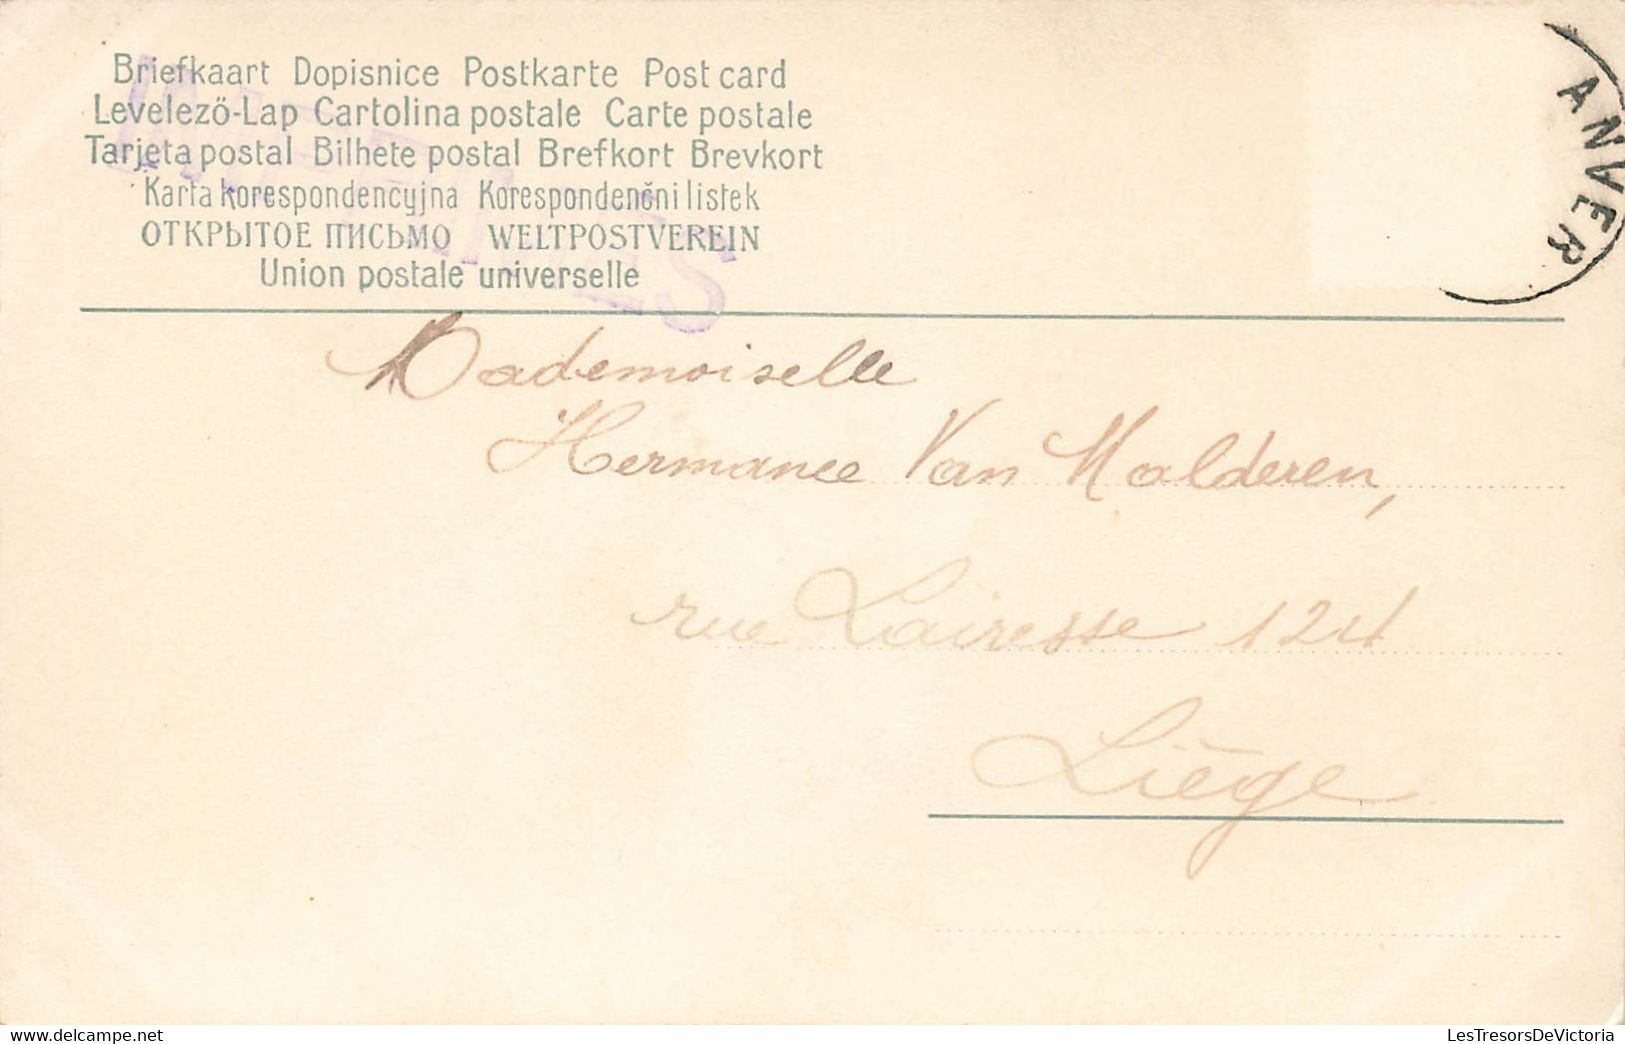 Briefkaart Dopisnice Postkarte Post card
Levelezö-Lap Cartolina postale Carte postale
Tarjeta postal Bilhete postal Brefkort Brevkort
Karta korespondencyjna Korespondenční listek
ОТКРЫТОЕ ПИСЬМО WELTPOSTVEREIN
Union postale universelle
ANVER
Mademoiselle
Hermance Van Malderen,
rue Lairesse 124
Liège
https://www.delcampe.net
LesTresorsDeVictoria